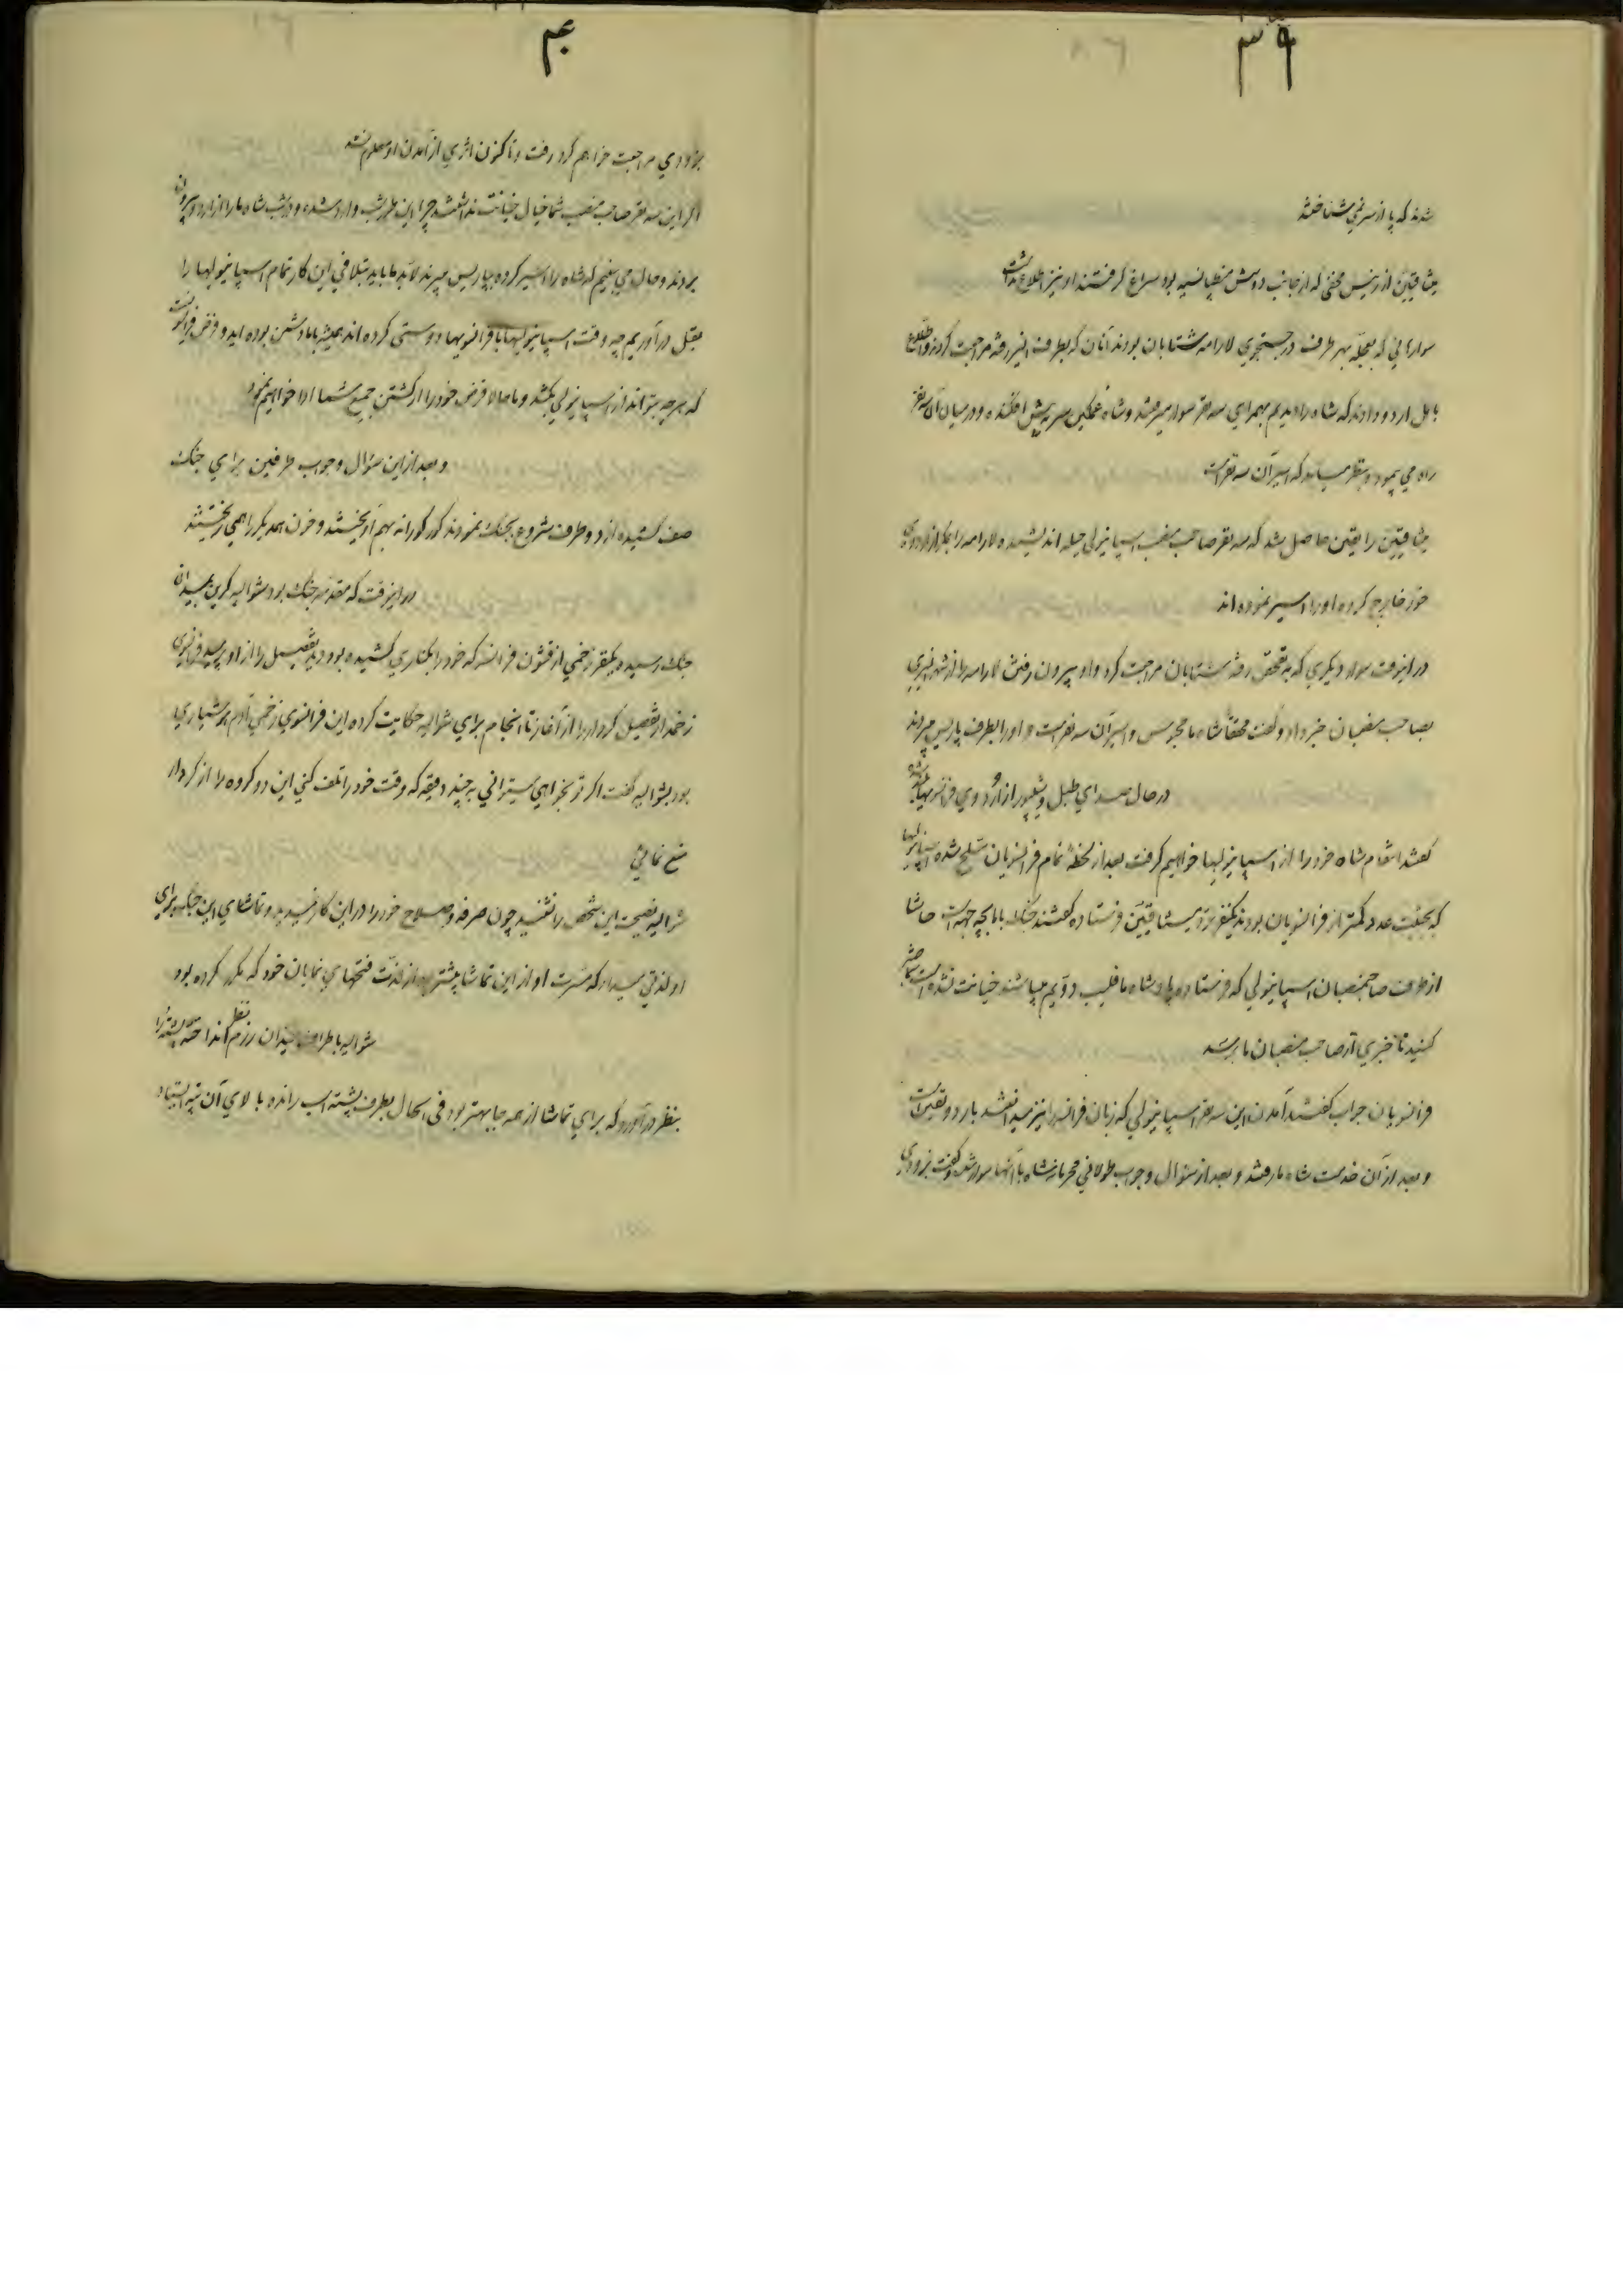 ۳۹
شدند که پا از سر نمی شناختند
از رئیس مخفی که از جانب بود سراغ گرفتند او نیز اطلاع نداشت
سوارانی که بعجله بهر طرف در جستجوی لارامه شتابان بودند آنان که بطرف رفته مراجعت کردند و اطلاع
باهل اردو دادند که شاه را دیدیم بهمراهی سه نفر سوار میرفتند و شاه غمگین سر به پیش افکنده و در میان آن سه نفر
راه می پیمود و بنظر میآمد که اسیر آن سه نفر است
را یقین حاصل شد که سه نفر صاحب منصب اسپانیولی حیله اندیشیده لارامه را از اردوی
خود خارج کرده او را اسیر نموده اند
در اینوقت سوار دیگری که به تحقیق رفته شتابان مراجعت کرد و از بیرون رفتن لارامه را از شهر
بصاحب منصبان خبر داد و گفت محققاً شاه ما محبوس و اسیر آن سه نفر است و او را بطرف پاریس میبردند
در حال صدای طبل و شیپور از اردوی فرانسویها بلند شده
گفتند انتقام شاه خود را از اسپانیولیها خواهیم گرفت بعد از لحظهٔ تمام فرانسویان مسلح شده اسپانیولیها
که بجمعیت عدد کمتر از فرانسویان بودند یکنفر نزد فرستاده گفتند جنگ با ما بچه جهت است حاشا
از طرف صاحبمنصبان اسپانیولی که فرستاده پادشاه ما فلیپ دویم میباشند خیانت نشده است
کنید تا خبری از صاحب منصبان ما برسد
فرانسویان جواب گفتند آمدن این سه نفر اسپانیولی که زبان فرانسه را نیز میدانند باردو
و بعد از آن خدمت شاه ما رفتند و بعد از سؤال و جواب طولانی محرمانه شاه با آنها سوار شد و گفت بزودی
۴۰
بزودی مراجعت خواهم کرد رفت و تا کنون اثری از آمدن او معلوم نشد
اگر این سه نفر صاحب منصب شما خیال خیانت نداشتند چرا این طور شب وارد شده و در شب شاه ما را از اردو بیرون
بردند و حال می بینیم که شاه را اسیر کرده بپاریس میبرند لابد ما باید بتلافی این کار تمام اسپانیولیها را
بقتل درآوریم چه وقت اسپانیولیها با فرانسویها دوستی کرده اند همیشه با ما دشمن بوده اید و فرض فرانسه است
که هر چه بتواند از اسپانیولی بکشد و ما حالا قرض خود را از کشتن جمیع شما ادا خواهیم نمود
و بعد از این سؤال و جواب طرفین برای جنگ
صف کشیده از دو طرف شروع بجنگ نمودند کورکورانه بهم آویختند و خون همدیگر را همی ریختند
در اینوقت که مقدمه جنگ بود شوالیه کرین بمیدان
جنگ رسیده یکنفر زخمی از قشون فرانسه که خود را بکناری کشیده بود دید تفصیل را از او پرسید فرانسوی
زخمدار تفصیل کردار را از آغاز تا انجام برای شوالیه حکایت کرده این فرانسوی زخمی آدم هوشیاری
بود بشوالیه گفت اگر تو بخواهی میتوانی به چند دقیقه که وقت خود را تلف کنی این دو گروه را از کردار
منع نمائی
شوالیه نصیحت این شخص را نشنید چون صرفه و صلاح خود را در این کار ندید و تماشای این جنگ برای
او لذتی میداد که مسرت او از این تماشا بیشتر از لذت فتحهای نمایان خود که مکرر کرده بود
شوالیه باطراف میدان رزم نظر انداخته پشته را
بنظر درآورد که برای تماشا از همه جا بهتر بود فی الحال بطرف پشته اسب رانده بالای آن تپه ایستاد